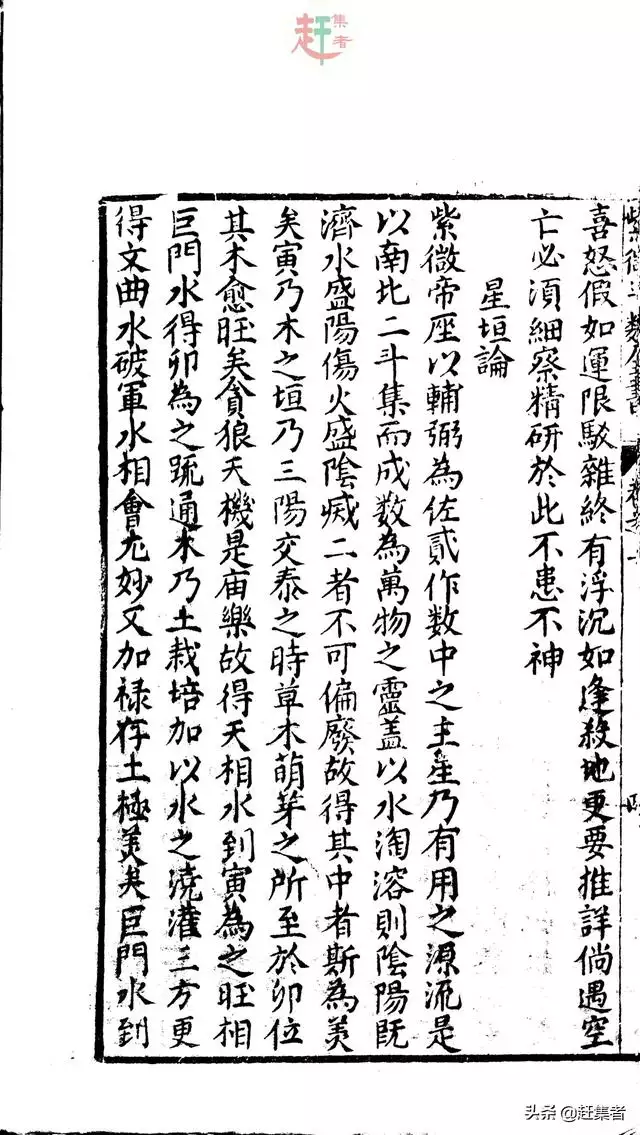 赶集者
喜怒假如運限駁雜終有浮沉如逢殺地更要推詳倘遇空
亡必須細察精研於此不患不神
星垣論
紫微帝座以輔弼為佐貳作数中之主星乃有用之源流是
以南北二斗集而成数為萬物之靈盖以水淘溶則陰陽既
濟水盛陽傷火盛陰滅二者不可偏廢故得其中者斯為美
矣寅乃木之垣乃三陽交泰之時草木萌芽之所至於卯位
其木愈旺矣貪狼天機是庙樂故得天相水到寅為之旺相
巨門水得卯為之䟽通木乃土栽培加以水之澆灌三方更
得文曲水破軍水相會尤妙又加禄存土極美矣巨門水到
头条@赶集者